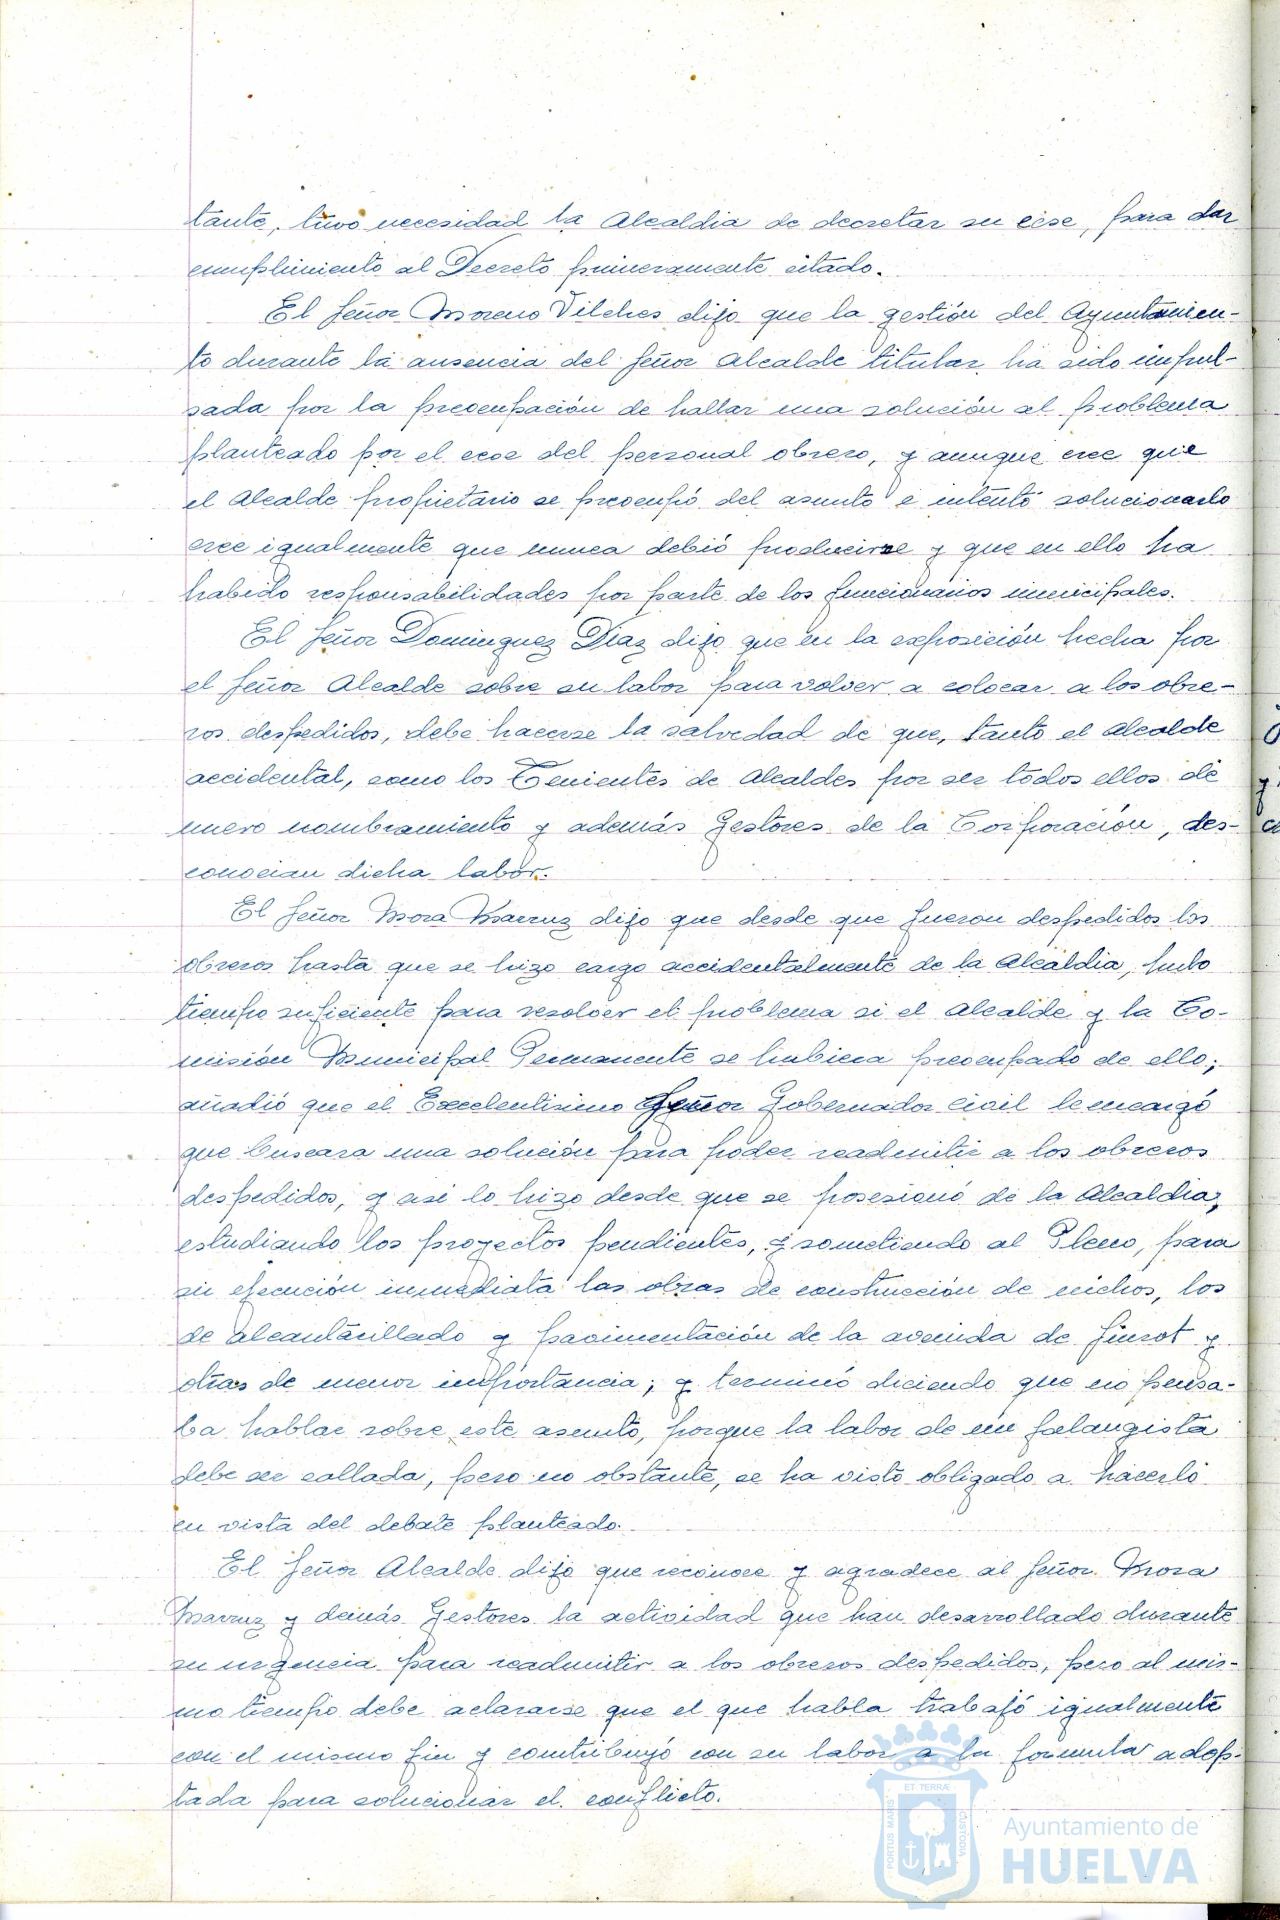 tante, tuvo necesidad la Alcaldia de decretar su cese, para dar
cumplimiento al Decreto primeramente citado.
El Señor Moreno Vilches dijo que la gestión del Ayuntamien-
to durante la ausencia del Señor Alcalde titular ha sido impul-
sada por la preocupación de hallar una solución al problema
planteado por el cese del personal obrero, y aunque cree que
el Alcalde propietario se preocupó del asunto e intentó solucionarlo
cree igualmente que nunca debió producirse y que en ello ha
habido responsabilidades por parte de los funcionarios municipales.
El Señor Dominguez Diaz dijo que en la exposición hecha por
el Señor Alcalde sobre su labor para volver a colocar a los obre-
ros despedidos, debe hacerse la salvedad de que, tanto el Alcalde
accidental, como los Tenientes de Alcaldes por ser todos ellos de
nuevo nombramiento y además Gestores de la Corporación, des-
conocian dicha labor.
El Señor Mora Marruz dijo que desde que fueron despedidos los
obreros hasta que se hizo cargo accidentalmente de la Alcaldia, hubo
tiempo suficiente para resolver el problema si el Alcalde y la Co-
misión Municipal Permanente se hubiera preocupado de ello;
añadió que el Excelentisimo Señor Gobernador Civil le encargó
que buscara una solución para poder readmitir a los obreros
despedidos, y asi lo hizo desde que se posesionó de la Alcaldia,
estudiando los proyectos pendientes, y sometiendo al Pleno, para
su ejecución inmediata las obras de construcción de nichos, los
de alcantarillado y pavimentación de la avenida de Siurot y
otras de menor importancia; y terminó diciendo que no pensa-
ba hablar sobre este asunto, porque la labor de un falangista
debe ser callada, pero no obstante, se ha visto obligado a hacerlo
en vista del debate planteado.
El Señor Alcalde dijo que reconoce y agradece al Señor Mora
Marruz y demás Gestores la actividad que han desarrollado durante
su urgencia para readmitir a los obreros despedidos, pero al mis-
mo tiempo debe aclararse que el que habla trabajó igualmente
con el mismo fin y contribuyó con su labor a la formula adop-
tada para solucionar el conflicto.
PORTUS MARIS
ET TERRÆ
CUSTODIA
Ayuntamiento de
HUELVA